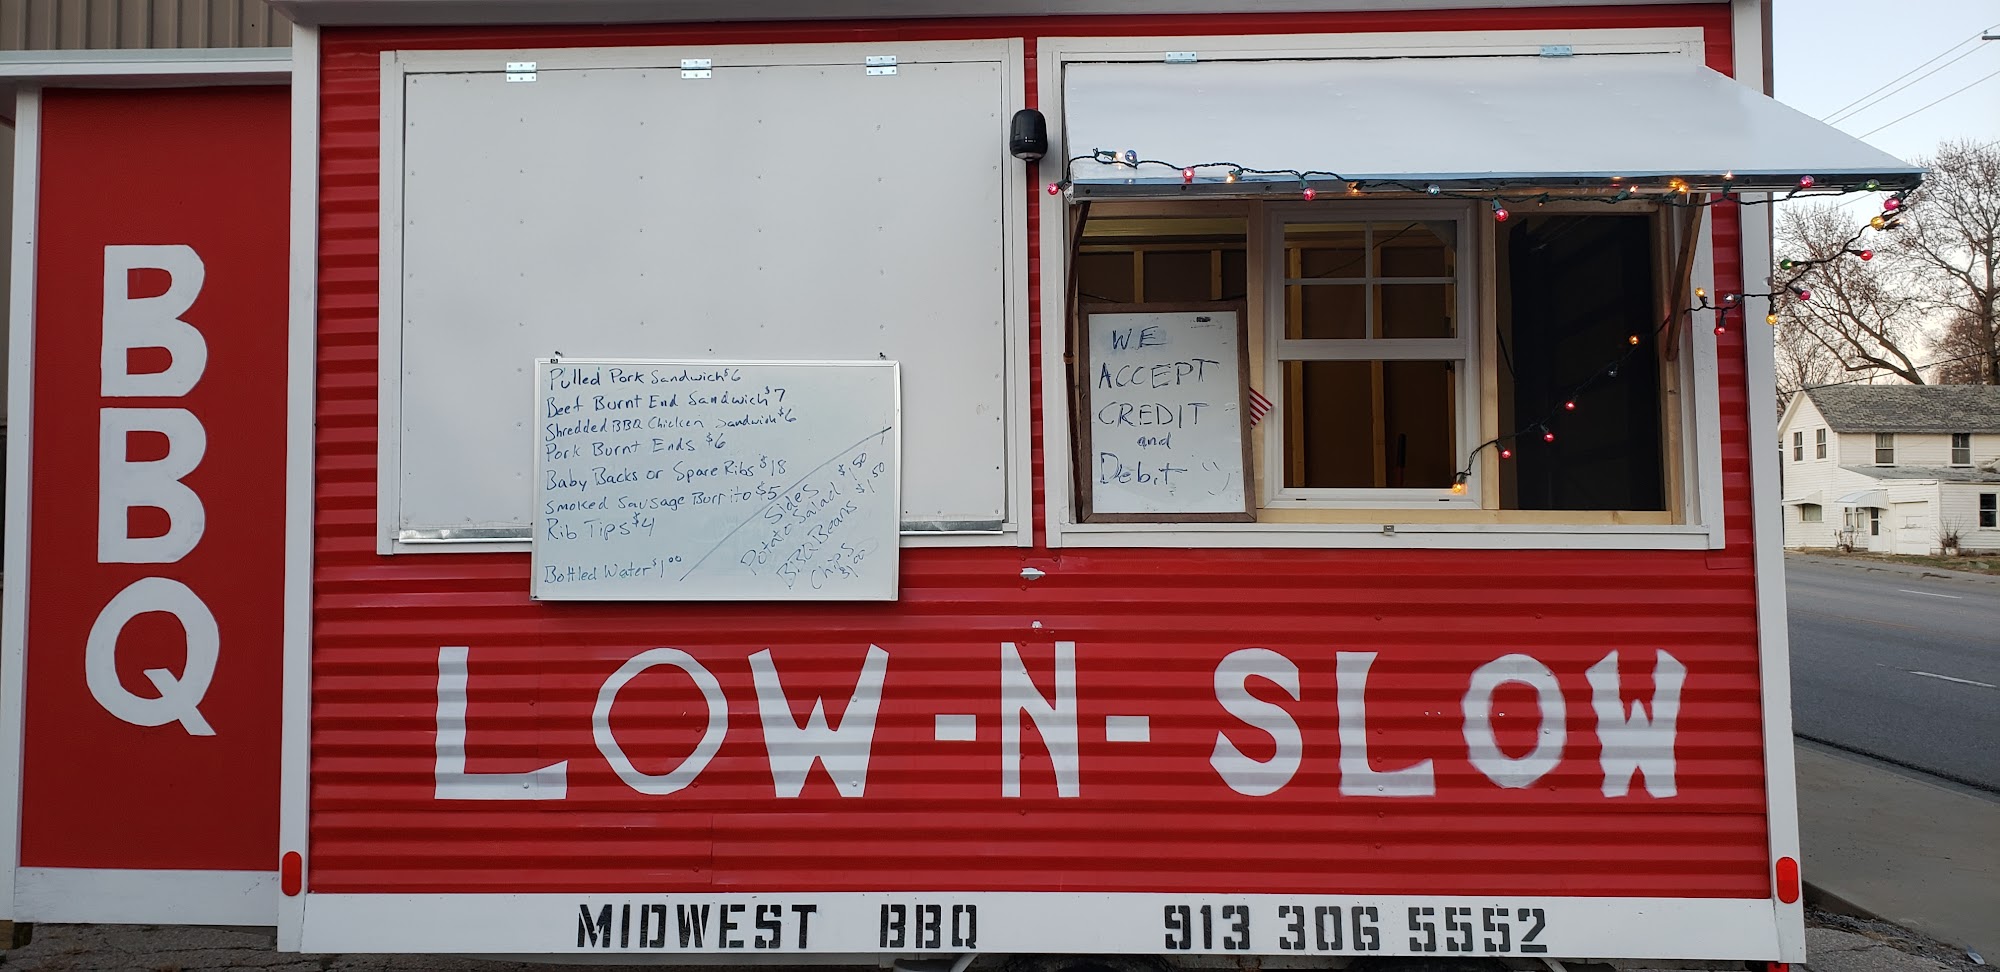 BBQ
Pulled Pork Sandwich $6
Beef Burnt End Sandwich $7
Shredded BBQ Chicken Sandwich $6
Pork Burnt Ends $6
Baby Backs or Spare Ribs $18
Smoked Sausage Burrito $5
Rib Tips $4
Bottled Water $1.00
Sides
Potato Salad $1.50
BBQ Beans $1.50
Chips
$1.00
WE
ACCEPT
CREDIT
and
Debit
LOW-N-SLOW
MIDWEST BBQ 913 306 5552